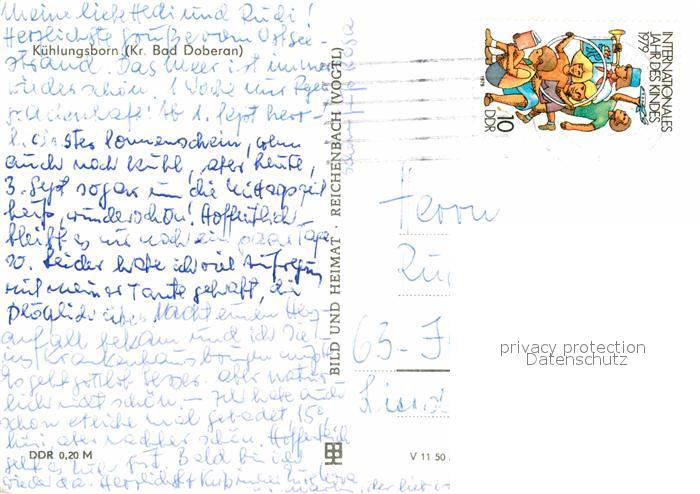 Meine liebe Hedi und Rudi!
Herzlichste Grüße vom Ostsee-
Kühlungsborn (Kr. Bad Doberan)
strand. Das Meer ist immer
wieder schön. 1 Woche nur Regen
ab 1. Sept herr-
lichster Sonnenschein, wenn
auch noch kühl, aber heute,
3. Sept sogar um die Mittagszeit
heiß, wunderschön! Hoffentlich
bleibt es nur noch ein paar Tage
so. Leider hatte ich viel Aufregung
mit meiner Tante gehabt, die
plötzlich über Nacht einen Herz-
anfall bekam und ich sie
ins Krankenhaus bringen mußte
Es geht gottlob besser. aber natür-
lich nicht schön. – Ich habe auch
schon etliche mal gebadet, 15°
aber nachher schön. Hoffentlich
geht es Euch gut. Bald bin ich
wieder da. Herzlichst
DDR 0,20 M
BILD UND HEIMAT · REICHENBACH (VOGTL)
V 11 50
INTERNATIONALES
JAHR DES KINDES
1979
DDR
10
Herrn
63-
privacy protection
Datenschutz